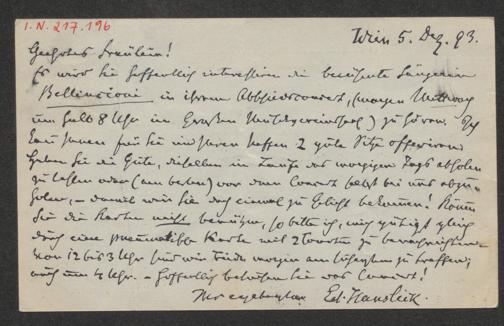 I.N. 217.196
Wien 5. Dez. 93.
Geehrtes Fräulein!
Es wird Sie hoffentlich interessiren die berühmte Sängerin
Bellincioni in ihrem Abschiedsconcert, (morgen Mittwoch
um halb 8 Uhr im Großen Musikvereinssaal) zu hören. Ich
kann Ihnen für Sie und Ihren 2 gute Sitze offeriren.
Haben Sie die Güte, dieselben im Laufe des morgigen Tags abholen
zu lassen oder (am besten) vor dem Concert selbst bei uns abzu-
holen, – damit wir Sie doch einmal zu Gesicht bekommen! Können
Sie die Karten nicht benützen, so bitte ich, mich gütigst gleich
durch eine pneumatische Karte mit 2 Worten zu benachrichtigen.
Von 12 bis 3 Uhr sind wir morgen am zu treffen;
auch um 4 Uhr. – Hoffentlich besuchen Sie das Concert!
Ihr ergebenster Ed. Hanslick.